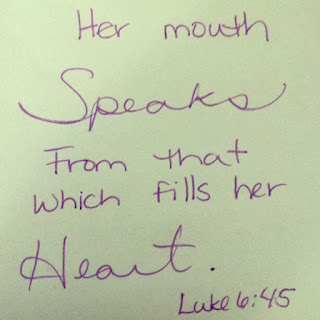 Her mouth
Speaks
From that
which fills her
Heart.
Luke 6:45